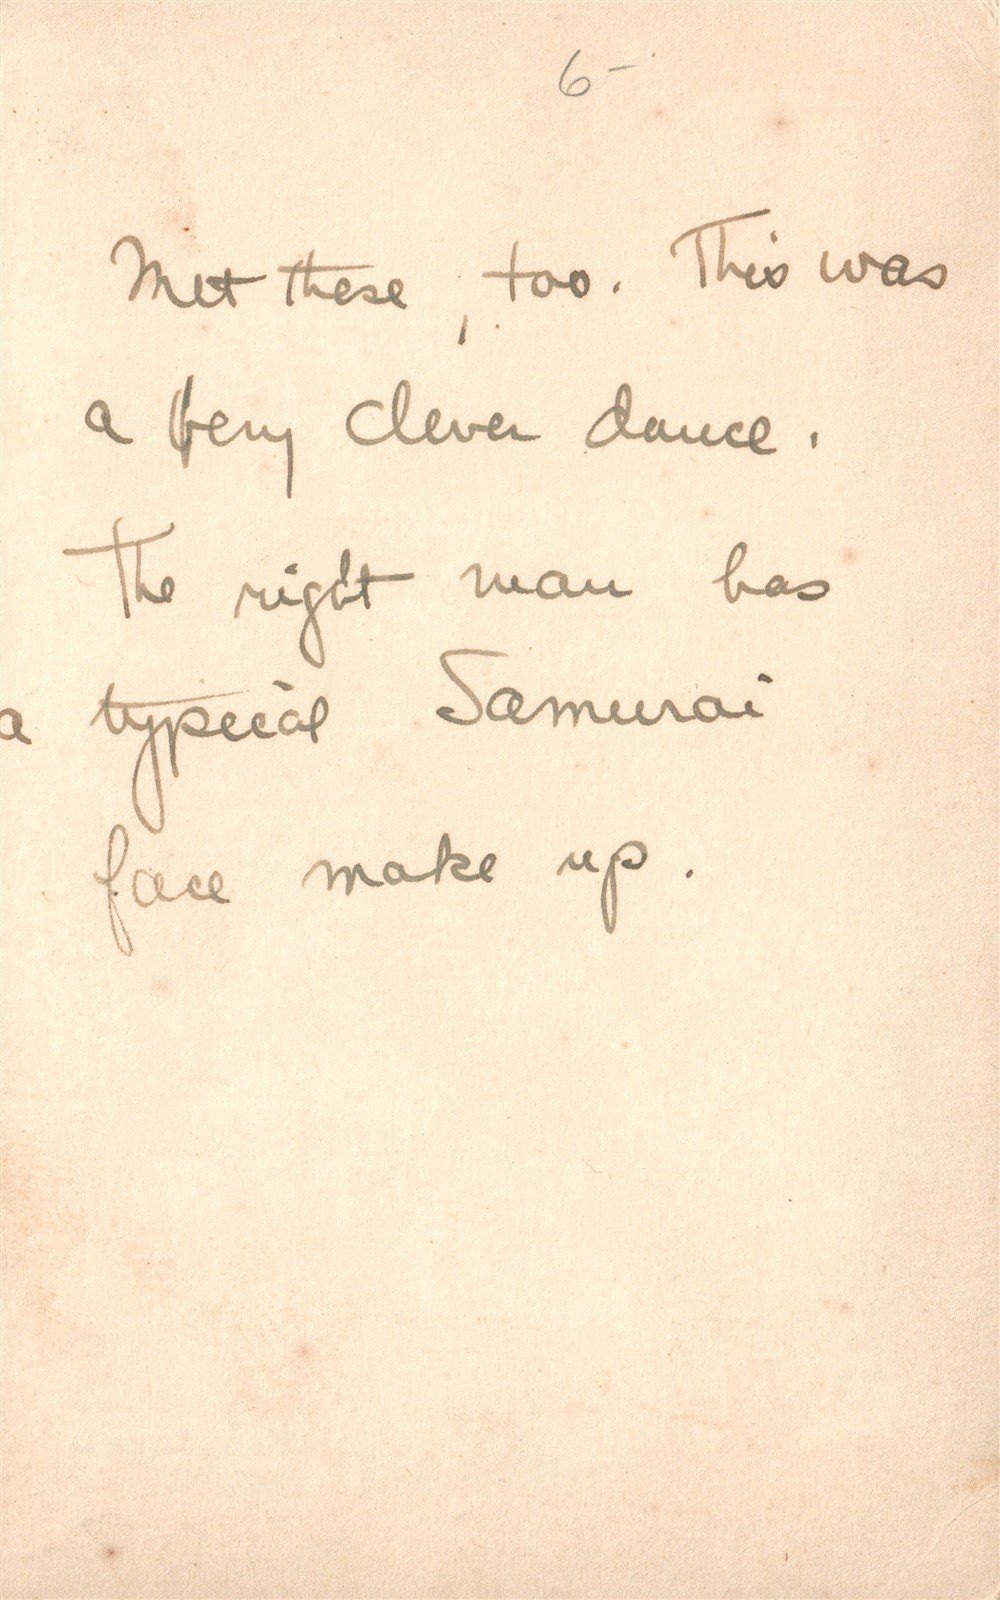 6-
Met these, too. This was
a very clever dance.
The right man has
a typecial Samurai
face make up.